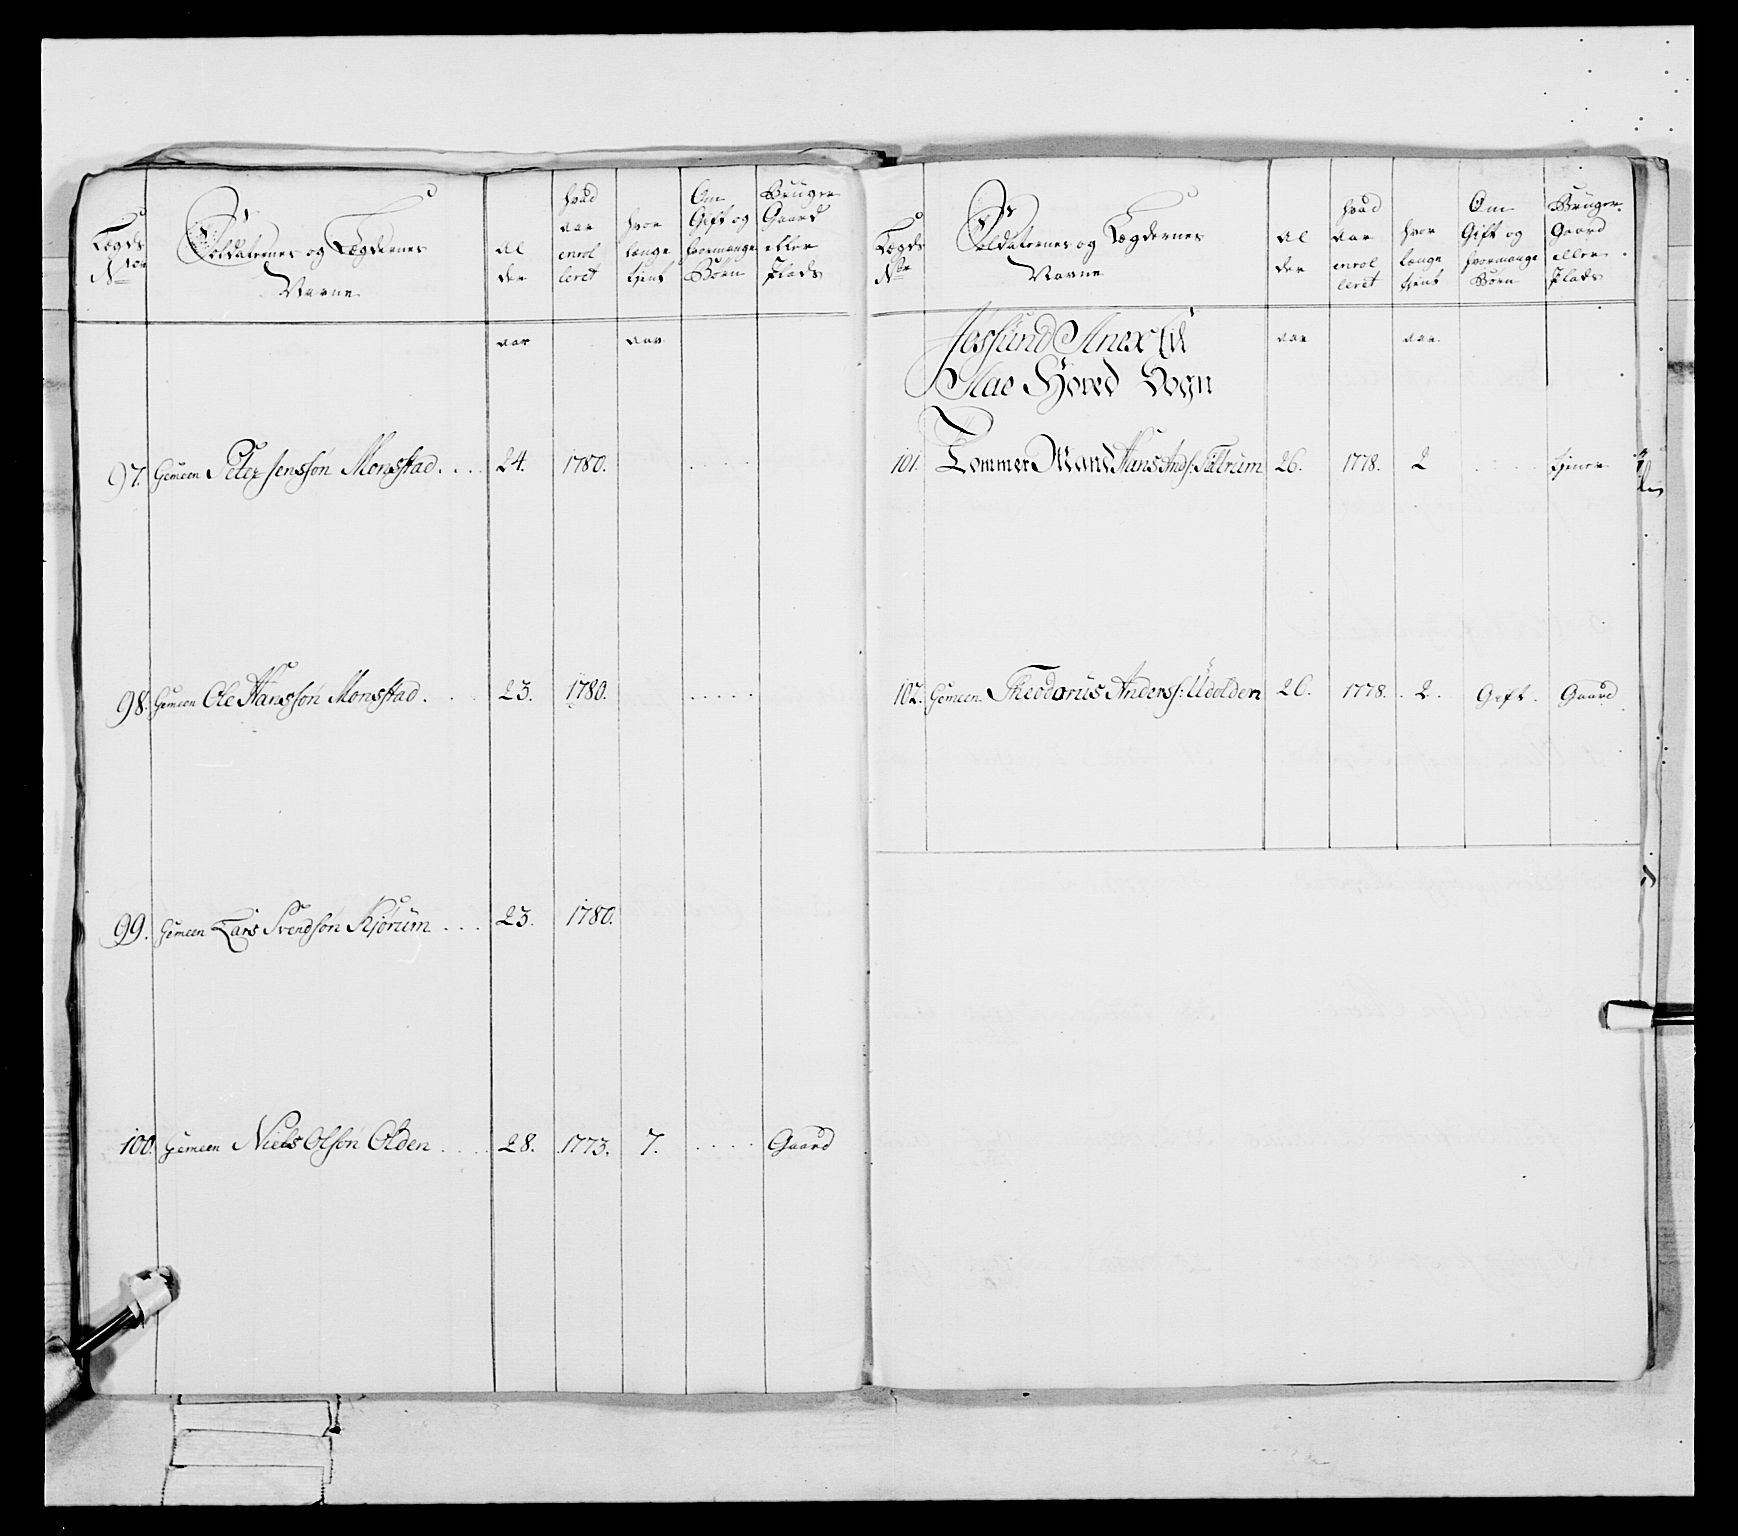 Lægds Nro
Soldaternes og Lægdernes Navne
Alder
hvad aar enrolleret
hvor længe tient
Om Gift og hvormange Børn
Bruger Gaard eller Plads
aar aar
97. Gemeen Peter Jensøn Monstad . . . 24. 1780. . . . .
98. Gemeen Ole Hansøn Monstad . . . 23. 1780. . . . . .
99. Gemeen Lars Svendsøn Kjørum . . . 23. 1780.
100. Gemeen Niels Olsøn Olden . . . . 28. 1773. 7. . . . . Gaard
Lægds Nr
Soldaternes og Lægdernes Navne
Alder
hvad aar enrolleret
hvor længe tient
Om Gift og hvormange Børn
Bruger Gaard eller Plads
Jøssund Anex til
Næs Hoved Sogn
aar aar
101. Tommer Mand Hans Ands: 26. 1778. 2 . . . . tjener
102. Gemeen Theodorus Anders: Udolden 26. 1778. 2. Gift. Gaard